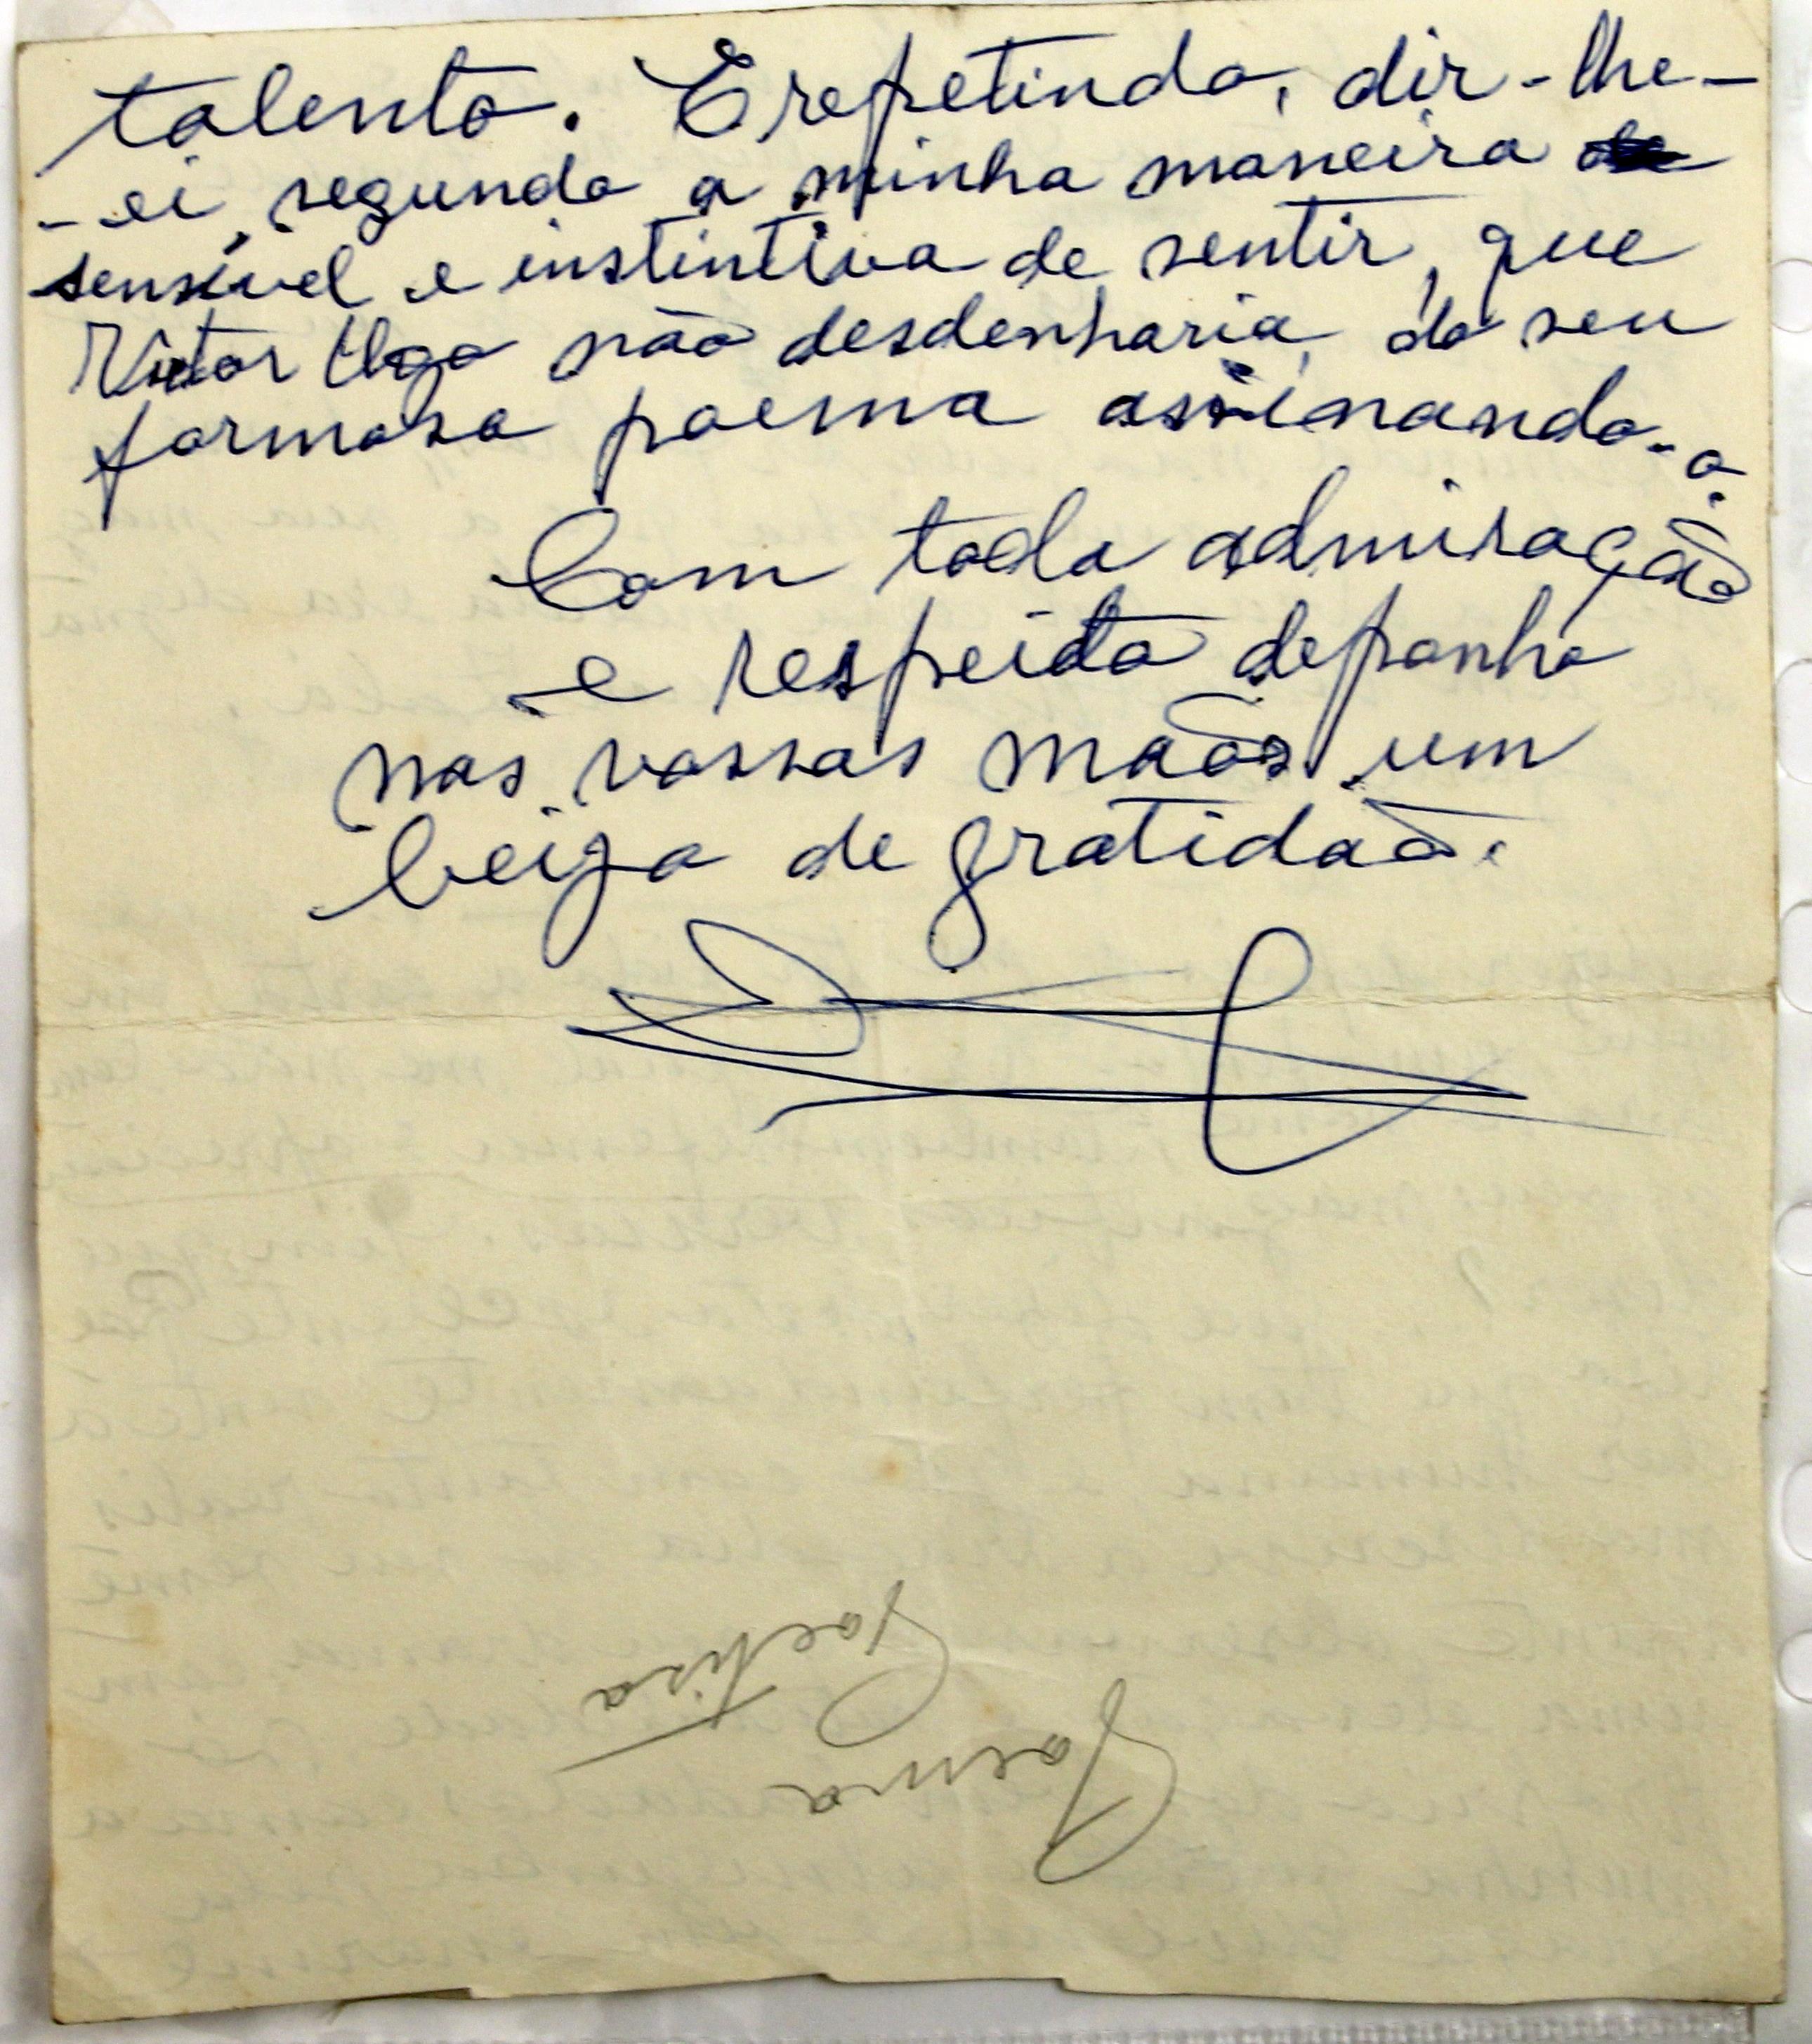 talento. E repetindo, dir-lhe-
-ei, segundo a minha maneira
sensivel e instintiva de sentir, que
Victor Ugo não desdenharia, do seu
formoso poema assinando-o.
Com toda admiração
e respeito deponho
nas vossas mãos um
beijo de gratidão.
Poema
Poetisa